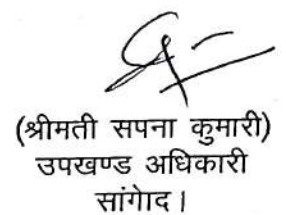 (श्रीमती सपना कुमारी)
उपखण्ड अधिकारी
सांगोद।